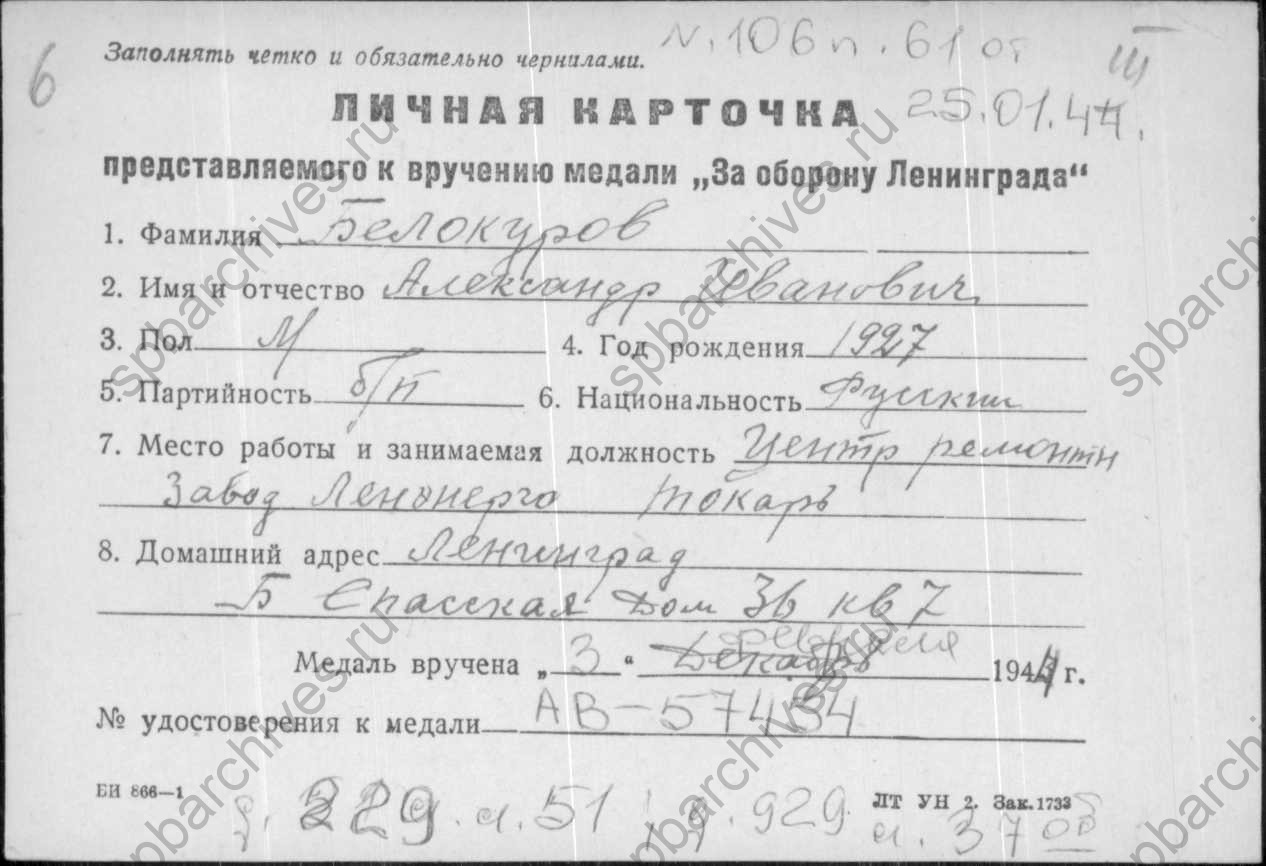 6
Заполнять четко и обязательно чернилами. N. 106 п. 61 от III
ЛИЧНАЯ КАРТОЧКА 25.01.44.
представляемого к вручению медали „За оборону Ленинграда“
1. Фамилия Белокуров
2. Имя и отчество Александр Иванович
3. Пол М 4. Год рождения 1927
5. Партийность б/п 6. Национальность Русский
7. Место работы и занимаемая должность Центр ремонтн
Завод Ленэнерго токарь
8. Домашний адрес Ленинград
Б Спасская Дом 36 кв 7
Медаль вручена „3“ Декабрь февраля 1944 г.
№ удостоверения к медали АВ-57434
БИ 866—1 ЛТ УН 2. Зак. 1733
229. л. 51 д. 929. л. 37 об
spbarchives.ru